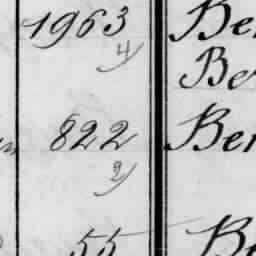 1963 Ber
4)
Be
822 Ber
2)
55 Be